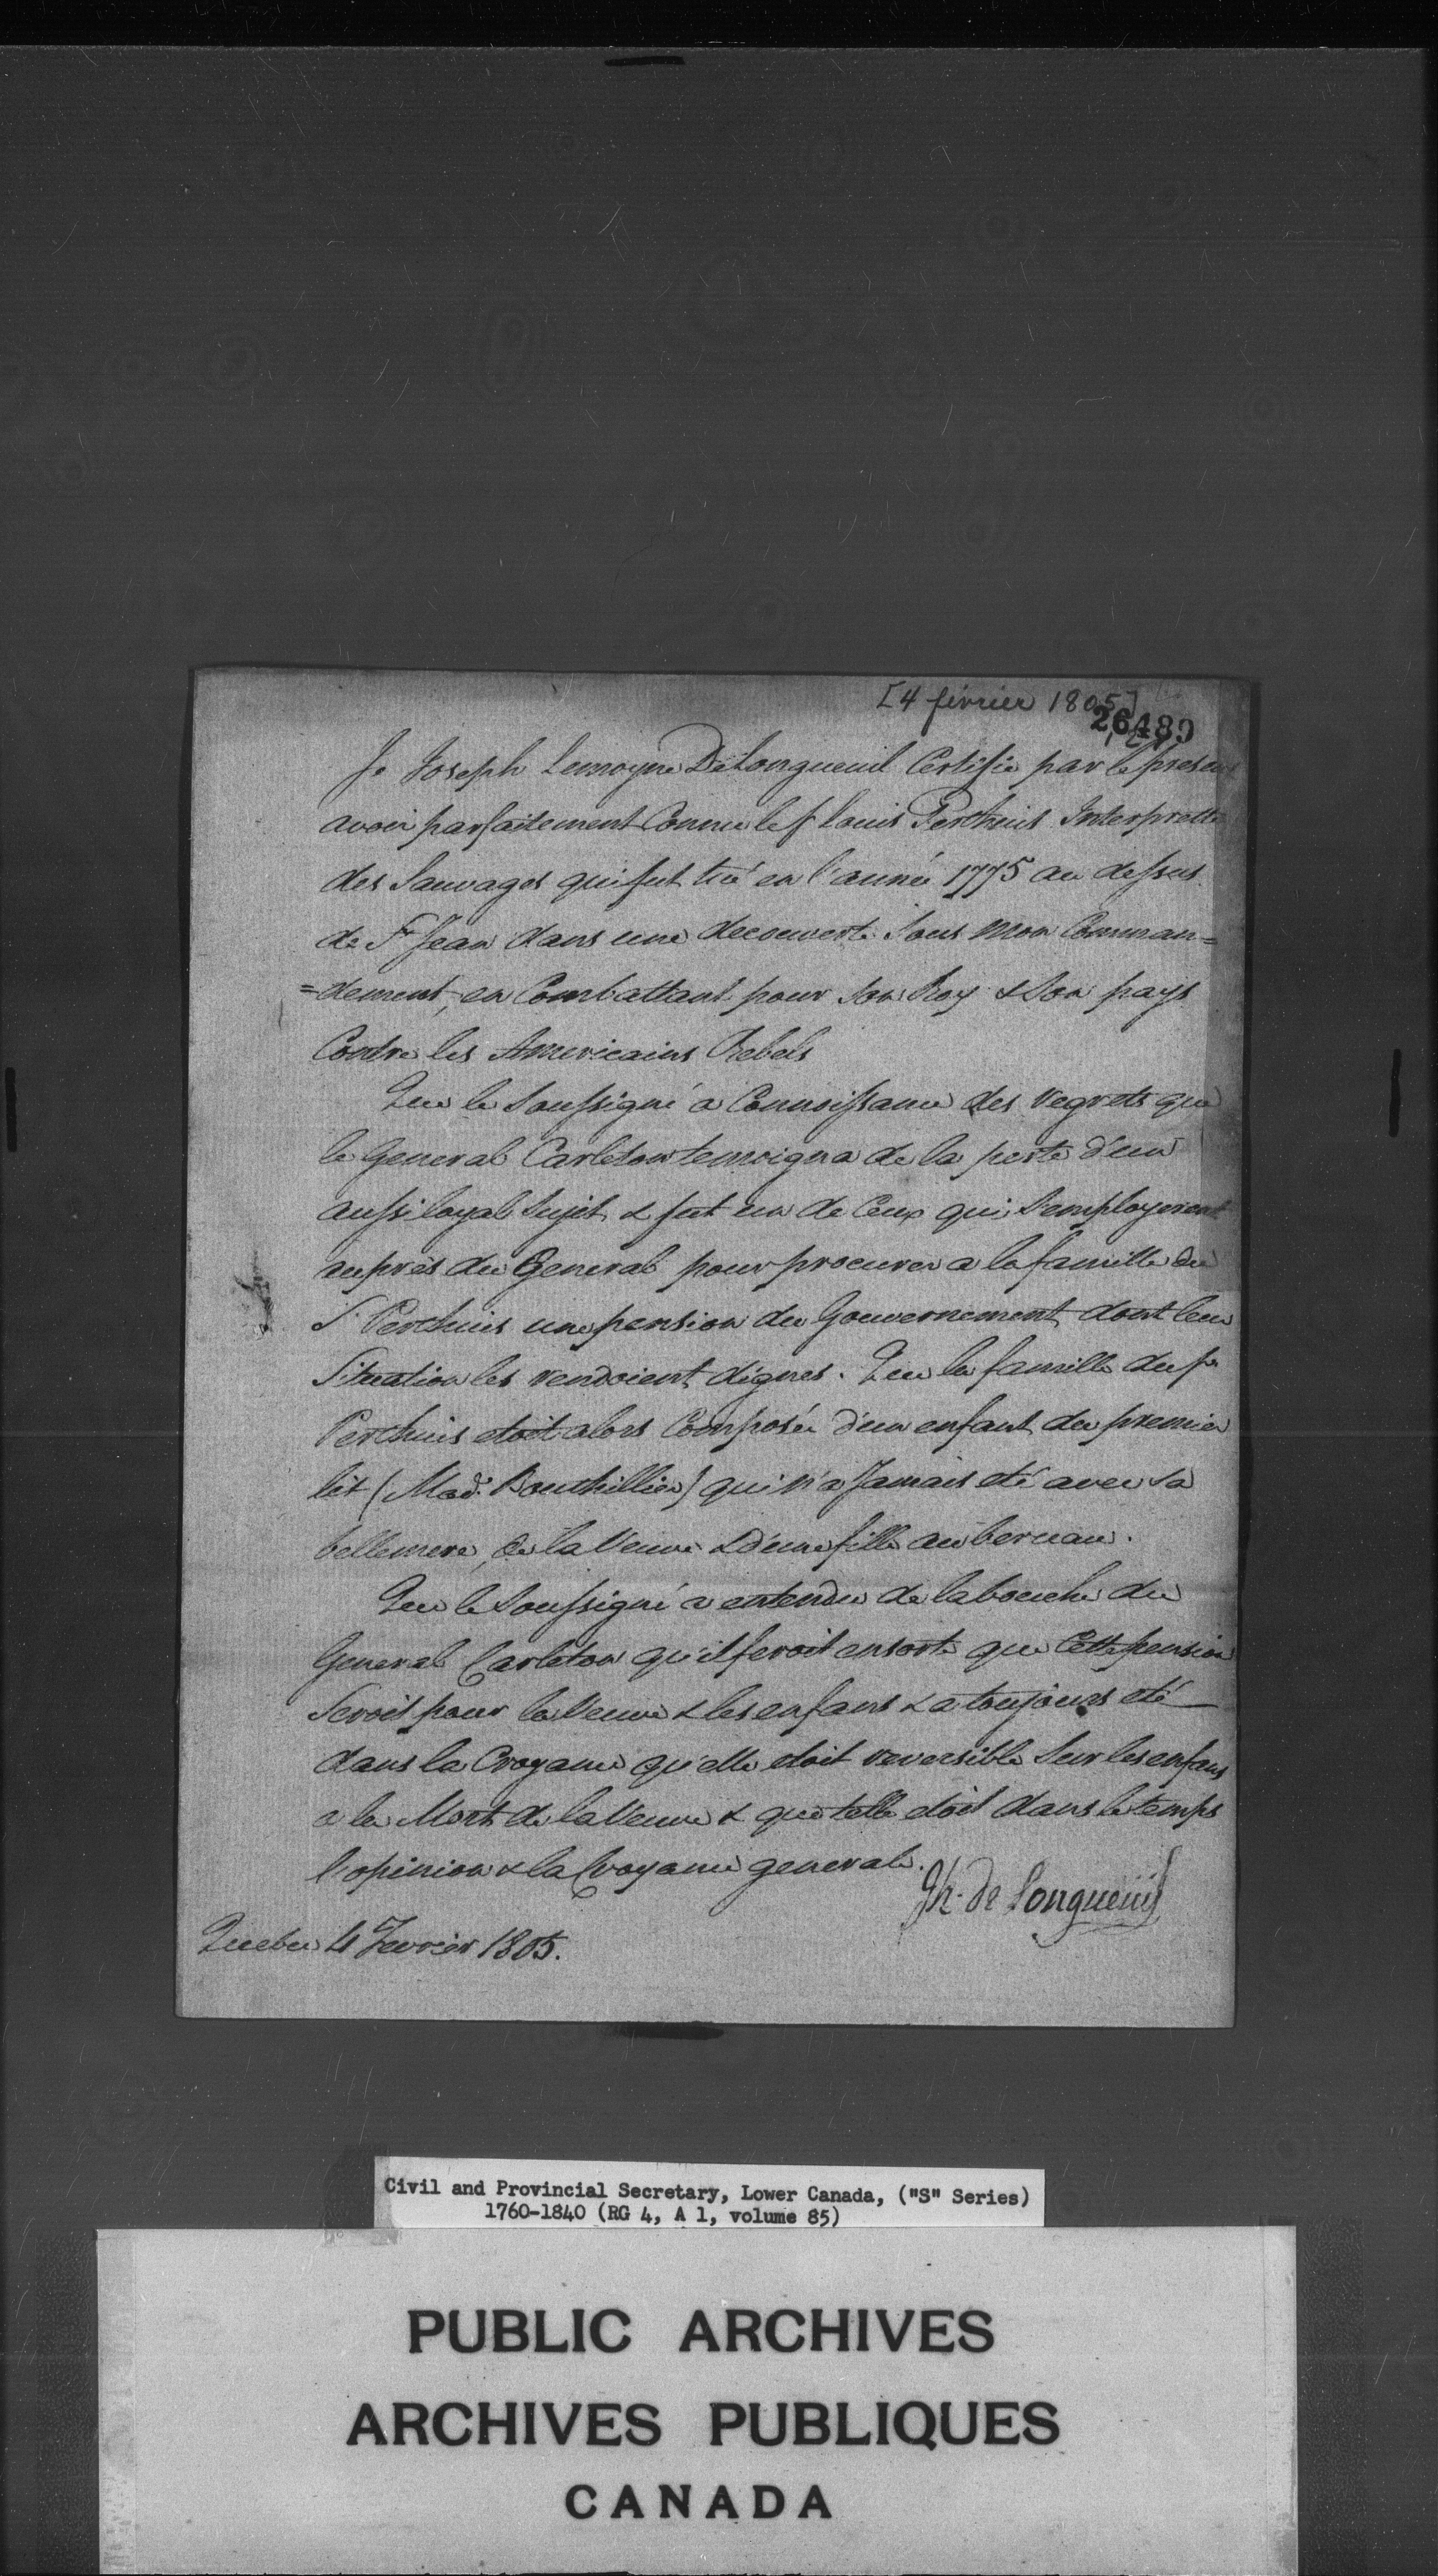 [4 février 1805]
26489
Je Joseph Lemoyne DeLongueuil Certifie par le present
avoir parfaitement Connu le f Louis Perthuis Interprette
des Sauvages qui fut tué en l'année 1775 au dessus
de St Jean dans une decouverte Sous Mon Comman=
=dement, en Combattant pour Son Roy & Son pays
Contre les Americains Rebels
Que le Soussigné a Connoissance des regrets que
le General Carleton temoigna de la perte d'un
aussi loyal Sujet & fut un de Ceux qui S'employerent
auprès du General pour procurer a la famille du
S. Perthuis une pension du Gouvernement dont leur
Situation les rendoient dignes. Que la famille du Sr
Perthuis etoit alors Composée d'un enfant du premier
lit (Mad.e Bouthillier) qui n'a Jamais eté avec Sa
bellemere, de la Veuve & d'une fille au berceau.
Que le Soussigné a entendu de la bouche du
General Carleton qu'il feroit ensorte que Cette pension
Seroit pour la Veuve & les enfans & a toujours eté
dans la Croyance qu'elle etoit reversible Sur les enfans
a la Mort de la Veuve & que telle etoit dans le temps
l'opinion & la Croyance generale.
Jh. de Longueüil
Quebec 4 Fevrier 1805.
Civil and Provincial Secretary, Lower Canada, ("S" Series)
1760-1840 (RG 4, A 1, volume 85)
PUBLIC ARCHIVES
ARCHIVES PUBLIQUES
CANADA